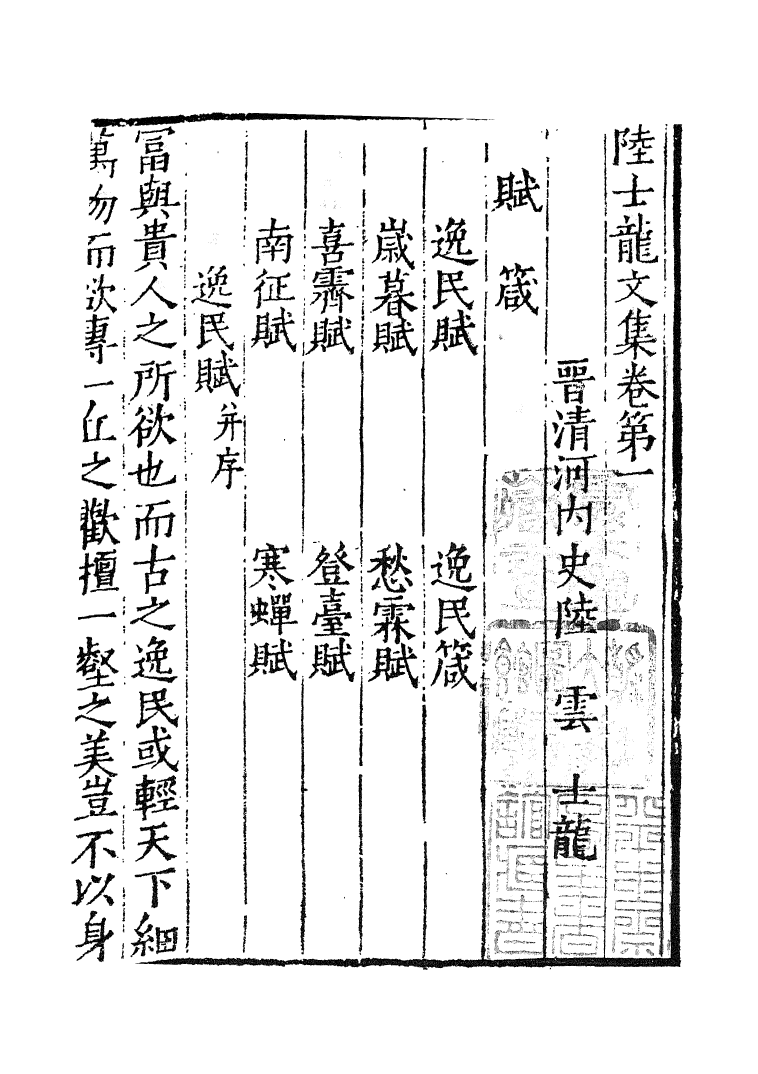 陸士龍文集卷第一
晉清河內史陸　雲　士龍
賦　箴
逸民賦　逸民箴
歳暮賦　愁霖賦
喜霽賦　登臺賦
南征賦　寒蟬賦
逸民賦并序
富與貴人之所欲也而古之逸民或輕天下細
萬物而欲專一丘之歡擅一壑之美豈不以身